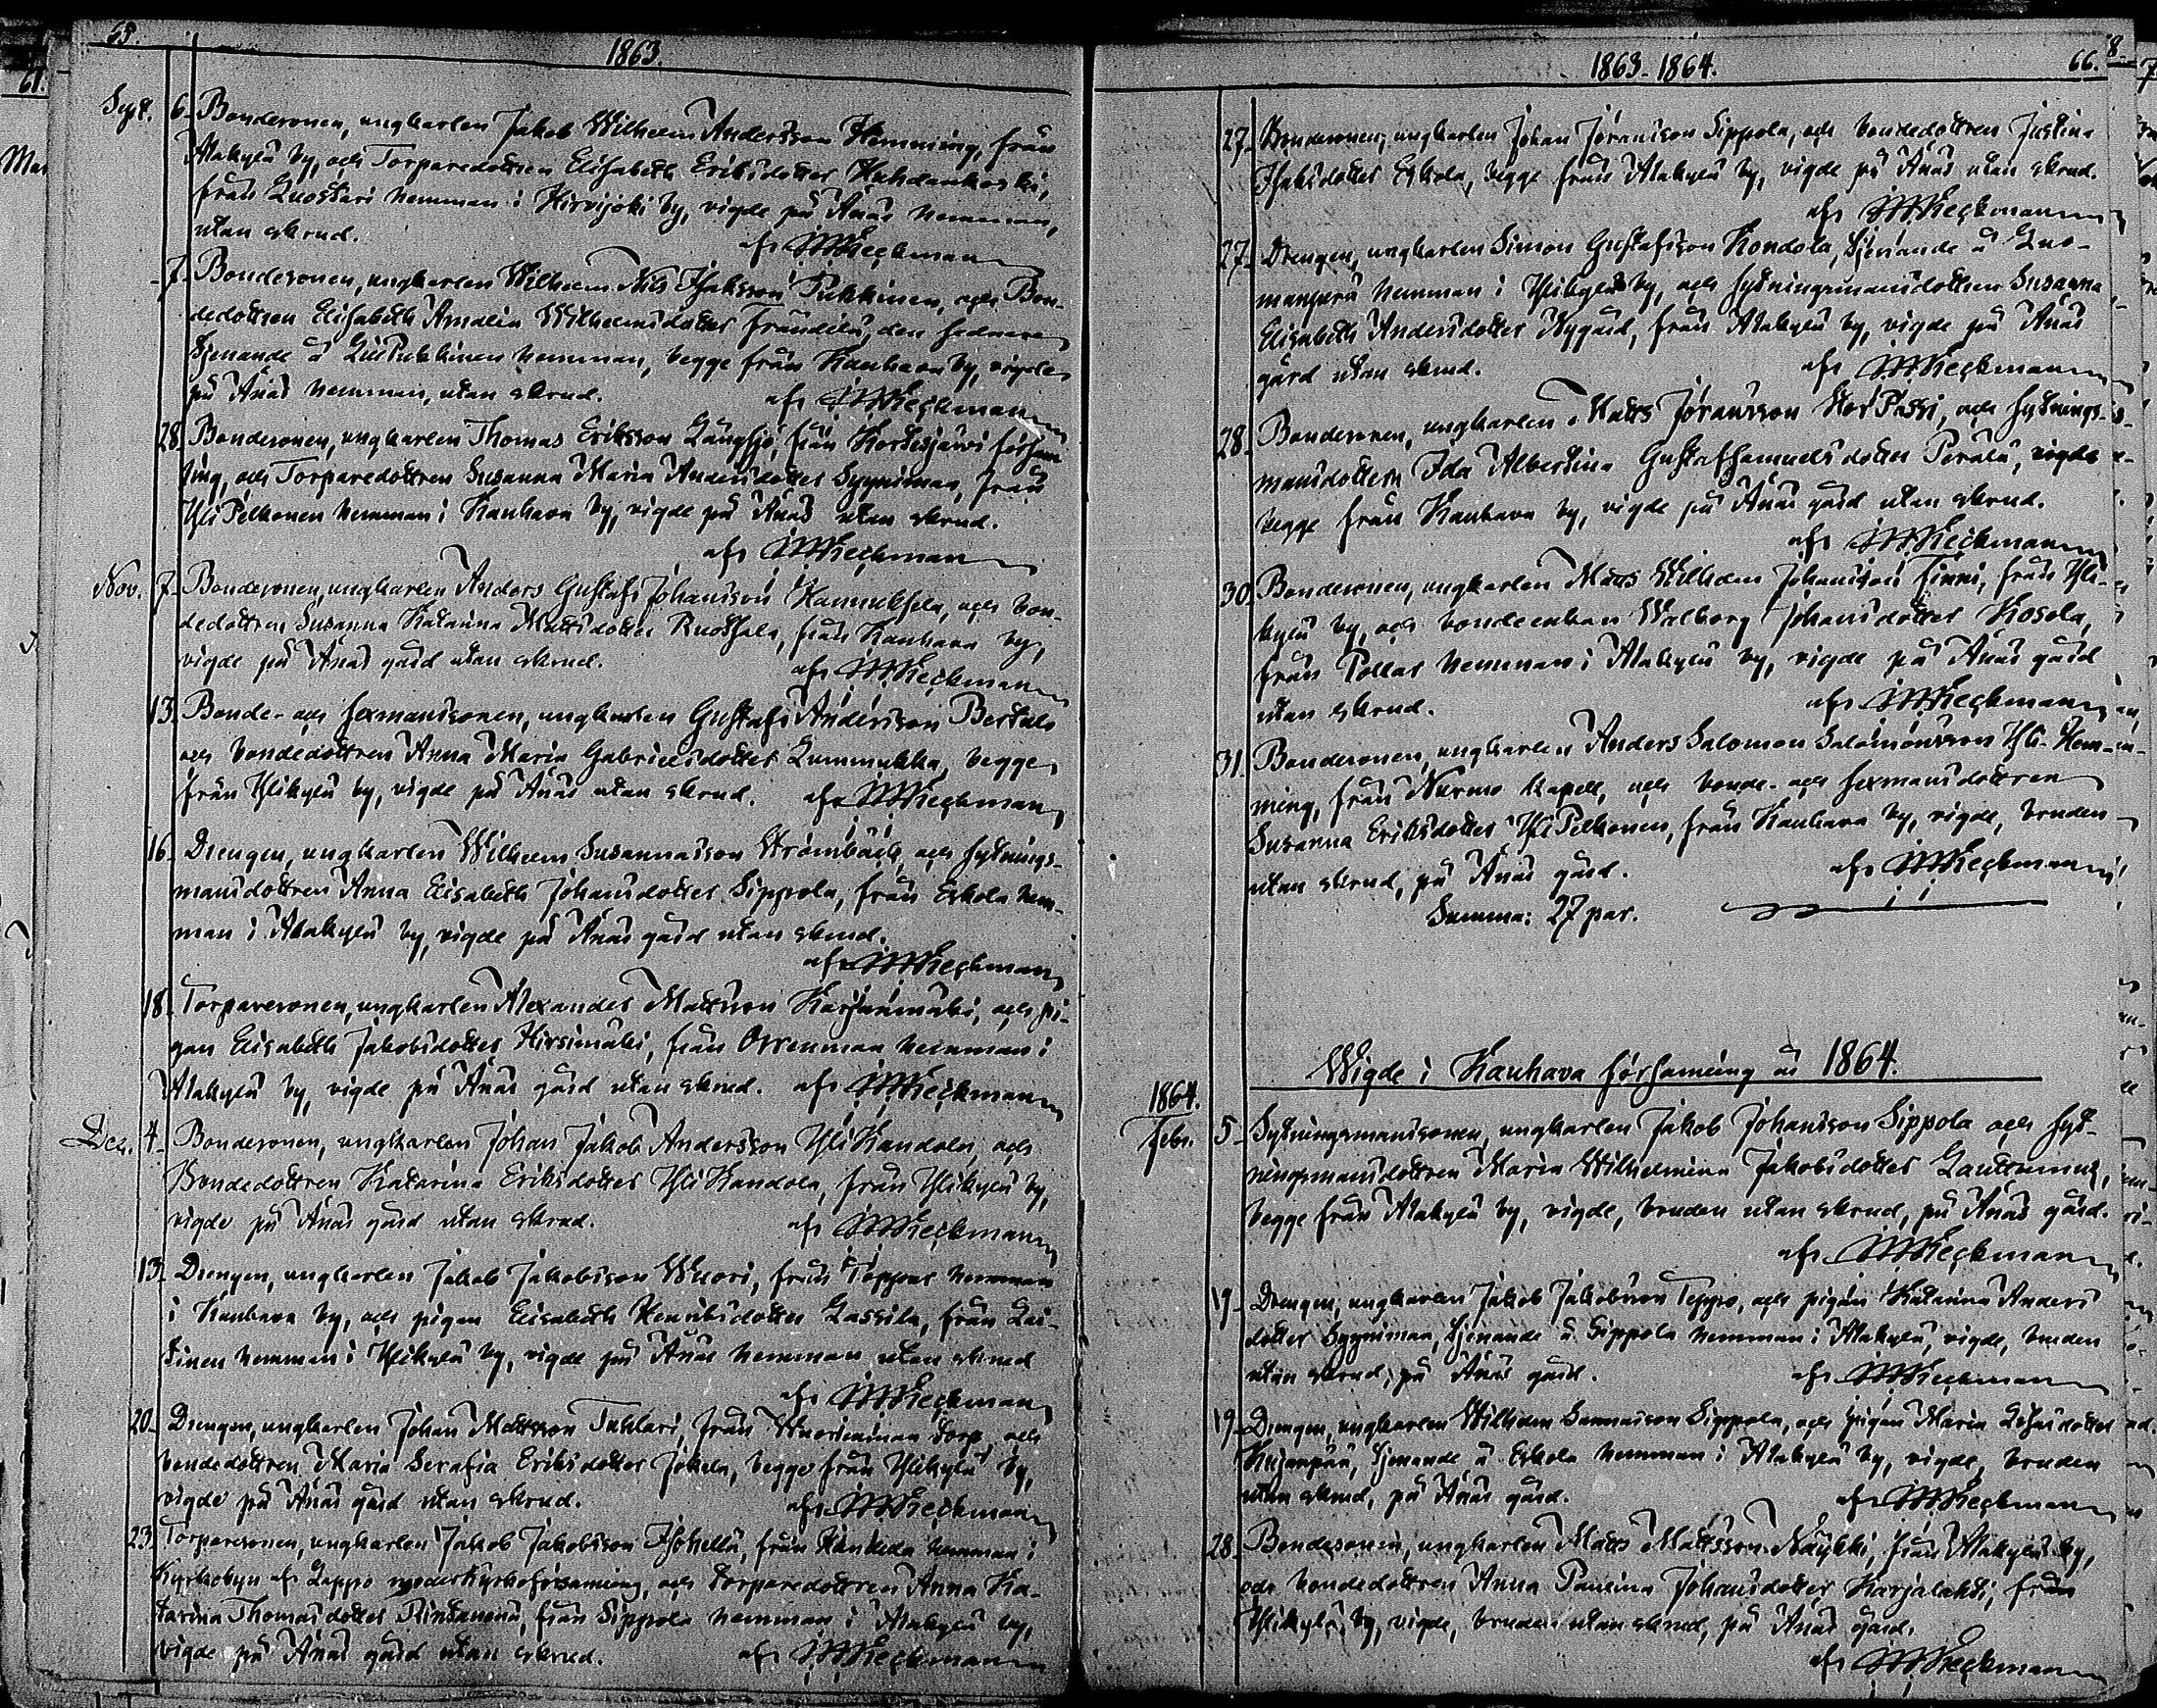 65.
1863.
Sept. 6. Bondesonen, ungkarlen Jakob Wilhelm Andersson Hemming, från
Alakylä by, och Torparedottren Elisabeth Eriksdotter
från Luostari hemman i Hirvijoki by, vigde på Ånäs hemman,
utan skrud. af
7. Bondesonen, ungkarlen Wilhelm Nils Isaksson Pukkinen, och Bon-
dedottren Elisabeth Amalia Wilhelmsdotter Frändilä, den sednare
tjenande å Pukkinen hemman, begge från Kauhava by, vigde
på Ånäs hemman, utan skrud. af
28. Bondesonen, ungkarlen Thomas Eriksson Långsjö, från Kortesjärvi försam
ling, och Torparedottren Susanna Maria Andersdotter Syynimaa, från
Yli Pelkonen hemman i Kauhava by, vigde på Ånäs utan skrud.
af
Nov. 7. Bondesonen, ungkarlen Anders Gustaf Johansson Hannuksela, och bon-
dedottren Susanna Katarina Mattsdotter Ruotsala, från Kauhava by,
vigde på Ånäs gård utan skrud. af
13. Bonde- och sexmanssonen, ungkarlen Gustaf Andersson Bertula
och bondedottren Anna Maria Gabrielsdotter Lummukka, begge
från Ylikylä by, vigde på Ånäs utan skrud. af
16. Drengen, ungkarlen Wilhelm Susannasson Strömbäck, och sytnings-
mansdottren Anna Elisabeth Johansdotter Sippola, från Eskola hem-
man i Alakylä by, vigde på Ånäs gård utan skrud.
af
18. Torparesonen, ungkarlen Alexander Mattsson Karjanmäki, och pi-
gan Elisabeth Jakobsdotter Hirsimäki, från Orrenmaa hemman i
Alakylä by, vigde på Ånäs gård utan skrud. af
Dec. 4. Bondesonen, ungkarlen Johan Jakob Andersson Yli Kandola, och
Bondedottren Katarina Eriksdotter Yli Kandola, från Ylikylä by,
vigde på Ånäs gård utan skrud. af
13. Drengen, ungkarlen Jakob Jakobsson Wuori, från hemman
i Kauhava by, och pigan Elisabeth Henriksdotter Lassila, från Lai-
tinen hemman i Ylikylä by, vigde på Ånäs hemman utan skrud
af
20. Drengen, ungkarlen Johan Mattsson från torp och
bondedottren Maria Serafia Eriksdotter Jokela, begge från Ylikylä by,
vigde på Ånäs gård utan skrud. af
23. Torparesonen, ungkarlen Jakob Jakobsson från hemman i
Kyrkobyn af Lappo moderkyrkoförsamling, och torparedottren Anna Ka-
tarina Thomasdotter från Sippola hemman i Alakylä by,
vigde på Ånäs gård utan skrud. af
1863-1864.
66.
27. Bondesonen, ungkarlen Johan Jöransson Sippola, och bondedottren Justina
Isaksdotter Eskola, begge från Alakylä by, vigde på Ånäs utan skrud.
af
27. Drengen, ungkarlen Simon Gustafsson Kondola, tjenande å Luo-
manperä hemman i Ylikylä by, och sytningsmansdottren Susanna
Elisabeth Andersdotter Nygård, från Alakylä by, vigde på Ånäs
gård utan skrud. af
28. Bondesonen, ungkarlen Matts Jöransson Stor Passi, och sytnings-
mansdottern Ida Albertina Gustaf Samuelsdotter Perälä, vigde
begge från Kauhava by, vigde på Ånäs gård utan skrud.
af
30. Bondesonen, ungkarlen Matts Wilhelm Johansson Finni, från Yli-
kylä by, och bondeenkan Walborg Johansdotter Kosola,
från Pollar hemman i Alakylä by, vigde på Ånäs gård
utan skrud. af
31. Bondesonen, ungkarlen Anders Salomon Salomonsson Yli-Hem-
ming, från Nurmo kapell, och bonde- och sexmansdottren
Susanna Eriksdotter Yli Pelkonen, från Kauhava by, vigde, bruden
utan skrud, på Ånäs gård. af
Summa: 27 par.
Wigde i Kauhava församling år 1864.
1864.
Febr. 5. Sytningsmanssonen, ungkarlen Jakob Johansson Sippola och syt-
ningsmansdottren Maria Wilhelmina Jakobsdotter
begge från Alakylä by, vigde, bruden utan skrud, på Ånäs gård.
af
19. Drengen, ungkarlen Jakob Jakobsson Teppo, och pigan Katarina Anders
dotter Syynimaa, tjenande å Sippola hemman i Alakylä, vigde, bruden
utan skrud, på Ånäs gård. af
19. Drengen, ungkarlen Wilhelm Sannasson Sippola, och pigan Maria
Kujanpää, tjenande å Eskola hemman i Alakylä by, vigde, bruden
utan skrud, på Ånäs gård. af
28. Bondesonen, ungkarlen Matts Mattsson Näykki, från Alakylä by,
och bondedottren Anna Paulina Johansdotter Karjalahti, från
Ylikylä by, vigde, bruden utan skrud, på Ånäs gård.
af